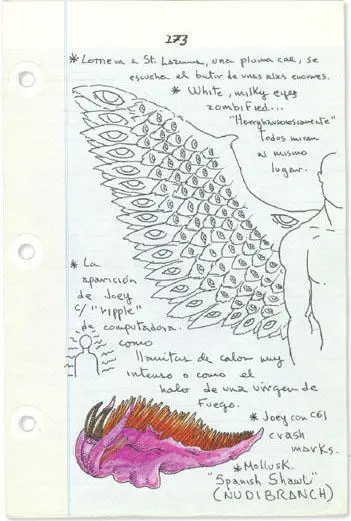 173
* Lorna a St. Lazarus, una pluma cae, se
escucha el batir de unas alas enormes.
* White, milky eyes
zombified...
"Harryhausenescamente"
todos miran
al mismo
lugar.
* La
aparición
de Joey
c/ "ripple"
de computadora.
como
llamitas de calor muy
intenso o como el
halo de una virgen de
Fuego.
* Joey con CGI
crash
marks.
* Mollusk.
"Spanish Shawl"
(NUDIBRANCH)